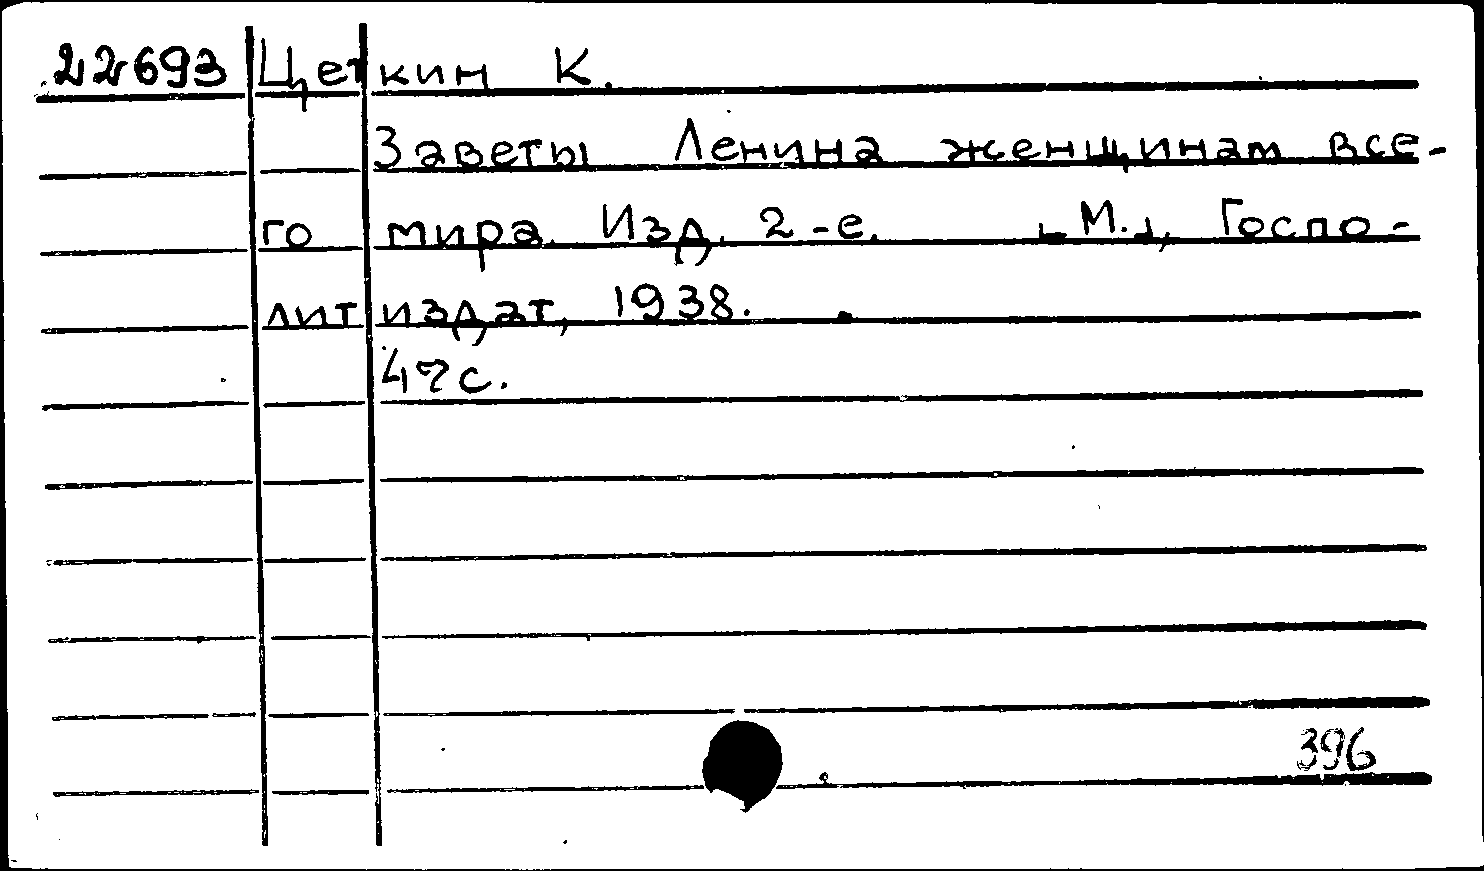 22693 Цеткин К.
Заветы Ленина женщинам все-
го мира. Изд. 2-е. [М.], Госпо-
литиздат, 1938.
47 с.
396